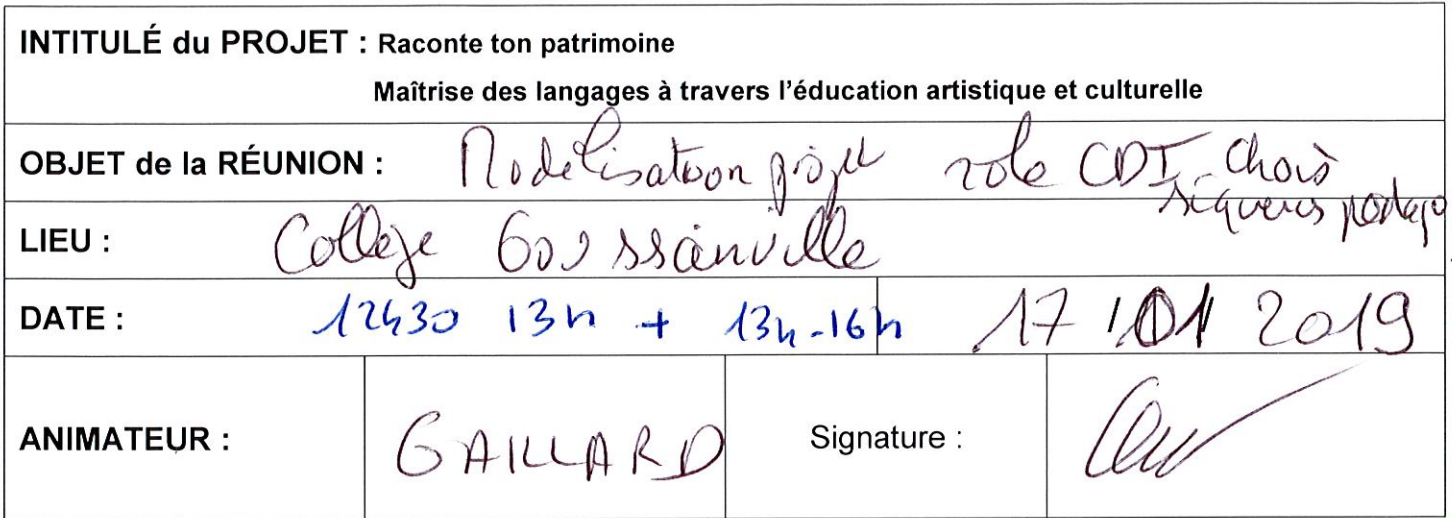 INTITULÉ du PROJET : Raconte ton patrimoine
Maîtrise des langages à travers l'éducation artistique et culturelle
OBJET de la RÉUNION : Modélisation projet rôle CDI - Choix
séquences pédago
LIEU : Collège Goussainville
DATE : 12h30 13h + 13h-16h 17 01 2019
ANIMATEUR : GAILLARD Signature :